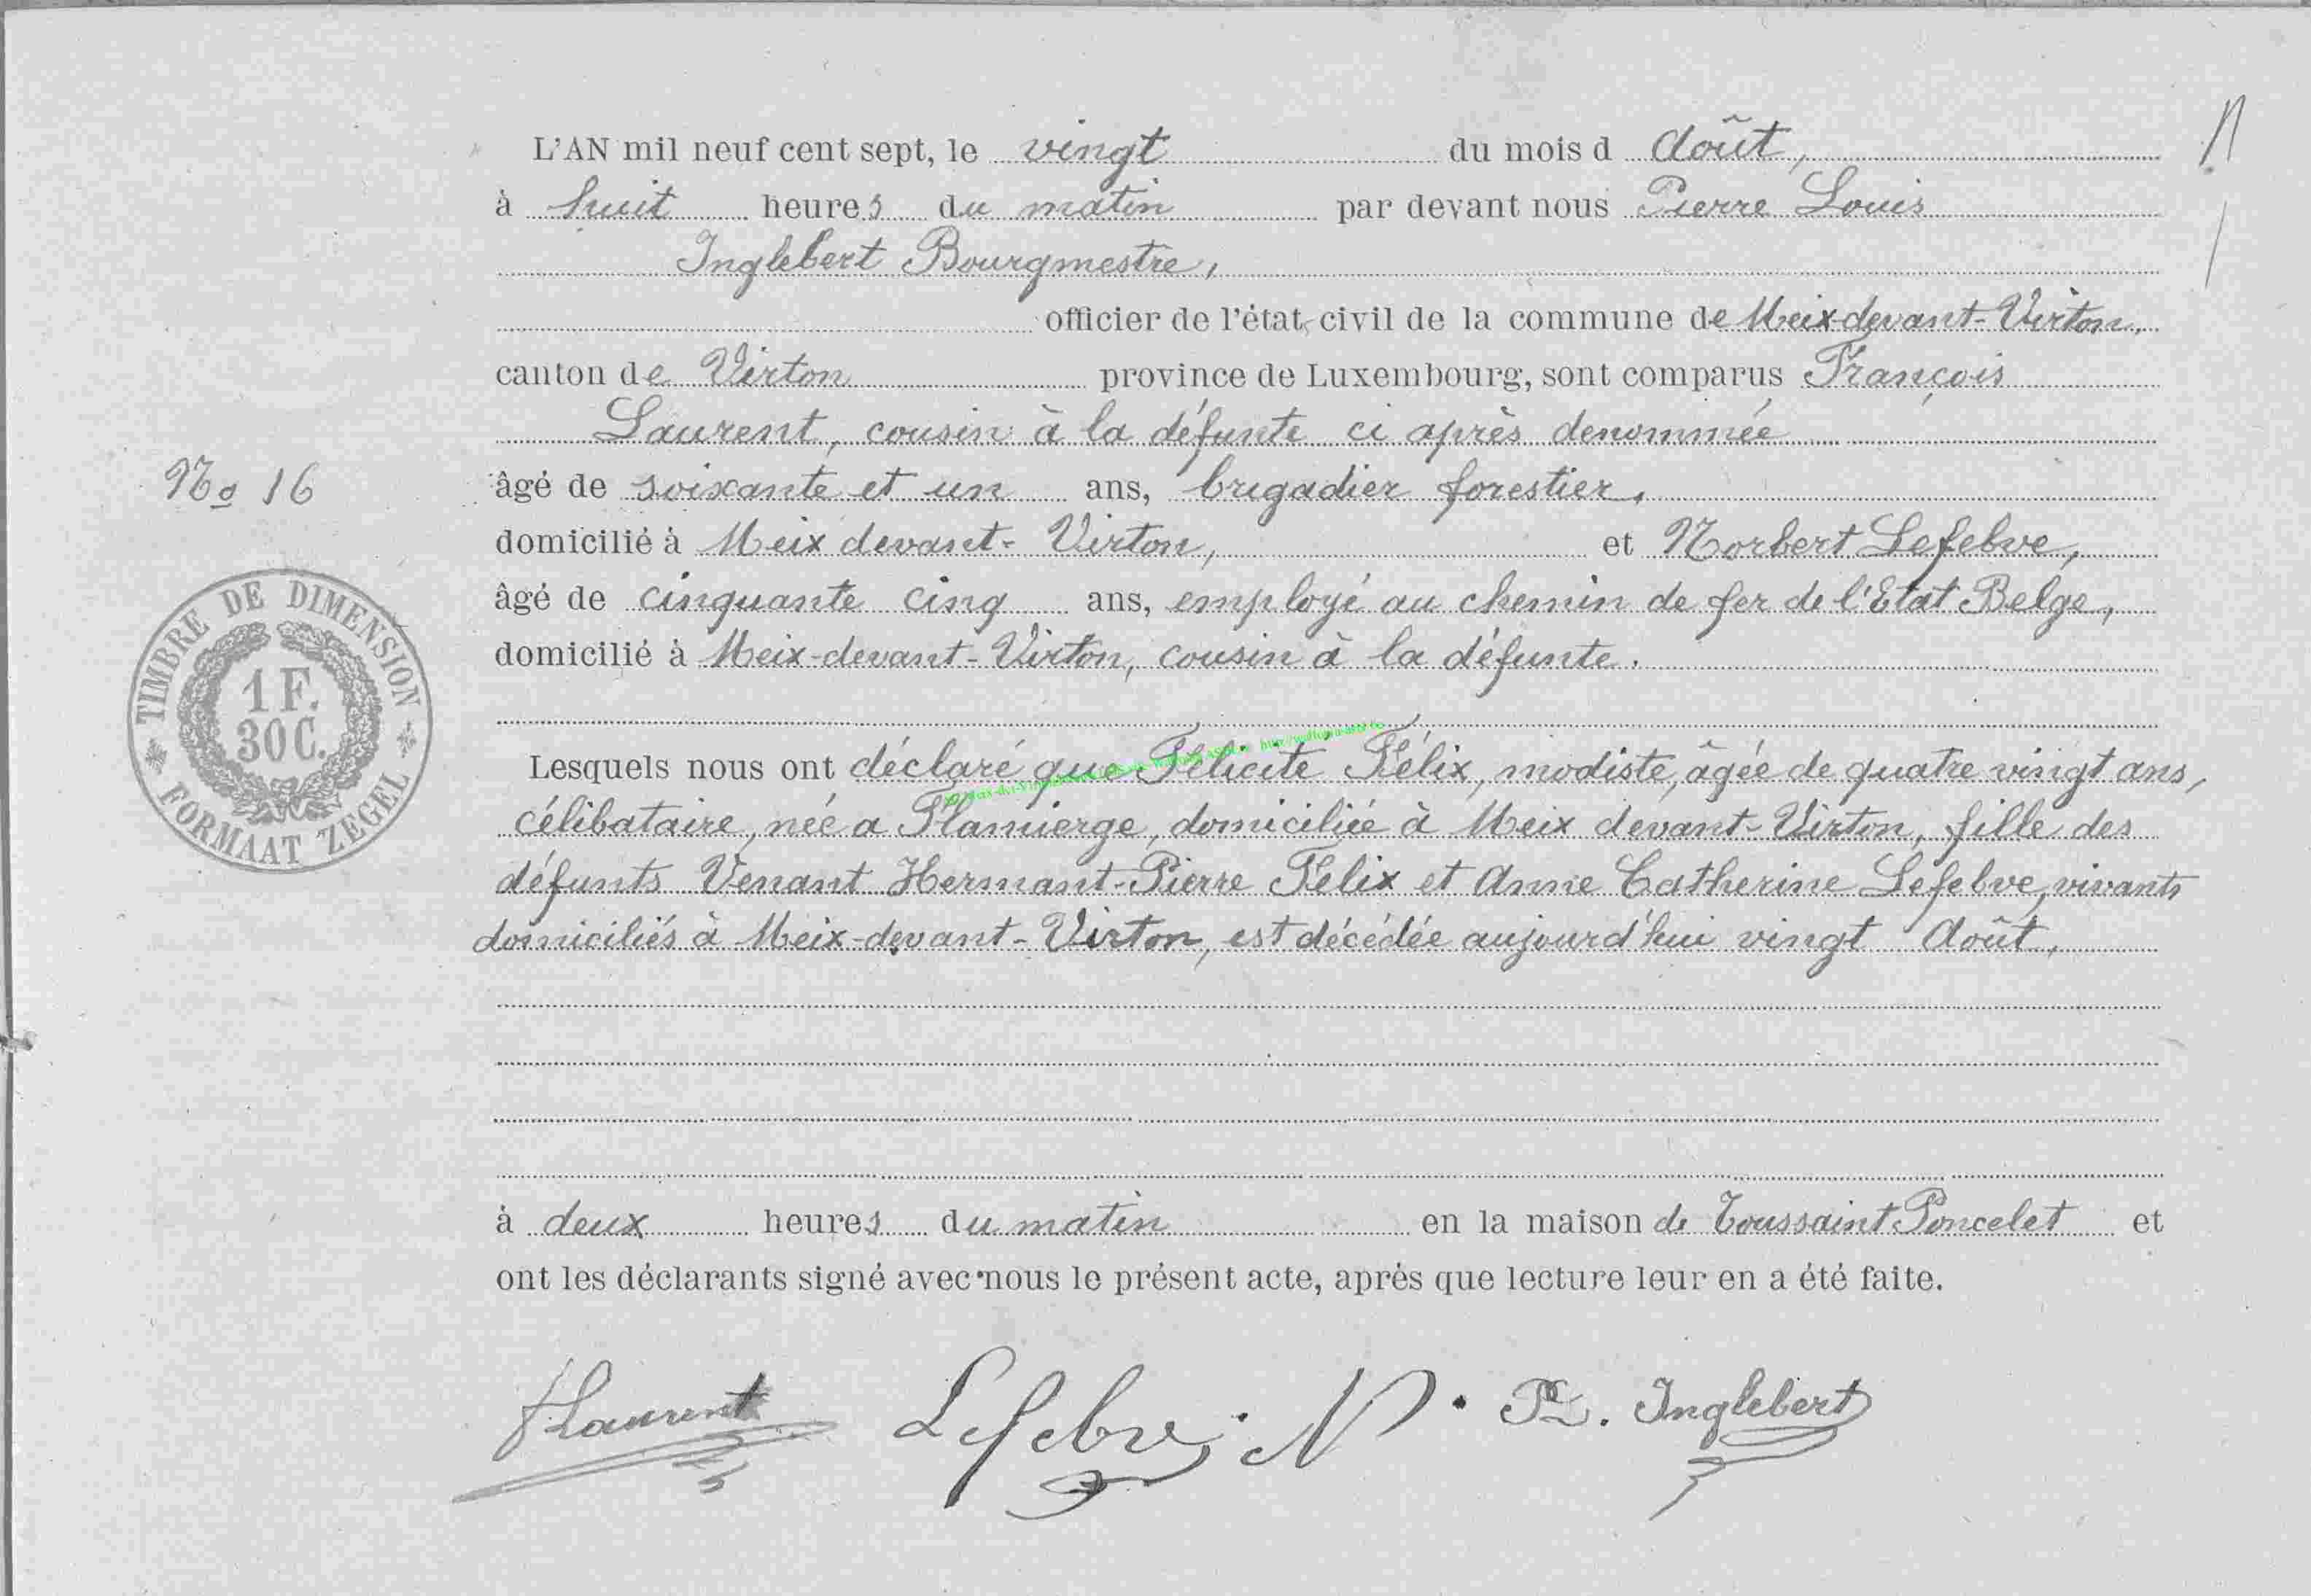 L'AN mil neuf cent sept, le vingt du mois d Août,
à huit heures du matin par devant nous Pierre Louis
Inglebert Bourgmestre,
officier de l'état civil de la commune de Meix-devant-Virton,
canton de Virton province de Luxembourg, sont comparus François
Laurent, cousin à la défunte ci après denommée
No 16
âgé de soixante et un ans, brigadier forestier,
domicilié à Meix devant-Virton, et Norbert Lefebve,
âgé de cinquante cinq ans, employé au chemin de fer de l'Etat Belge,
domicilié à Meix-devant-Virton, cousin à la défunte.
TIMBRE DE DIMENSION
1 F.
30 C.
FORMAAT ZEGEL
Lesquels nous ont déclaré que Félicité Félix, modiste, âgée de quatre vingt ans,
célibataire, née a Flamierge, domiciliée à Meix devant-Virton, fille des
défunts Venant Hermant-Pierre Félix et Anne Catherine Lefebve, vivants
domiciliés à Meix-devant-Virton, est décédée aujourd'hui vingt Août,
à deux heures du matin en la maison de Toussaint Poncelet et
ont les déclarants signé avec nous le présent acte, après que lecture leur en a été faite.
FLaurent Lefebve N. PL. Inglebert